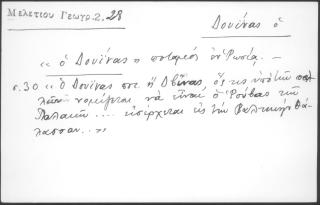 Μελετίου Γεωγρ. 2, 28
Δουίνας ὁ
"ὁ Δουΐνας ποταμὸς ἐν Ρωσίᾳ. —
σ. 30 "Ὁ Δουΐνας ποτ. ἢ Δβίνας, ὅστις ὑπὸ τῶν
νομίζεται νὰ εἶναι ὁ Ῥούβας τῶν
Παλαιῶν .... εἰσέρχεται εἰς τὴν Βαλτικὴν θά-
λασσαν..."